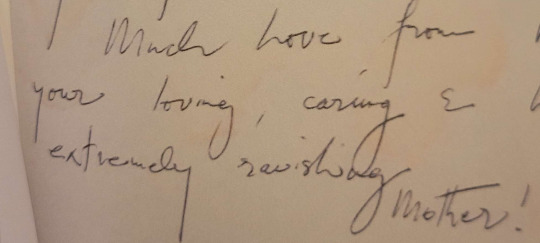 Much love from
your loving, caring &
extremely ravishing
Mother!